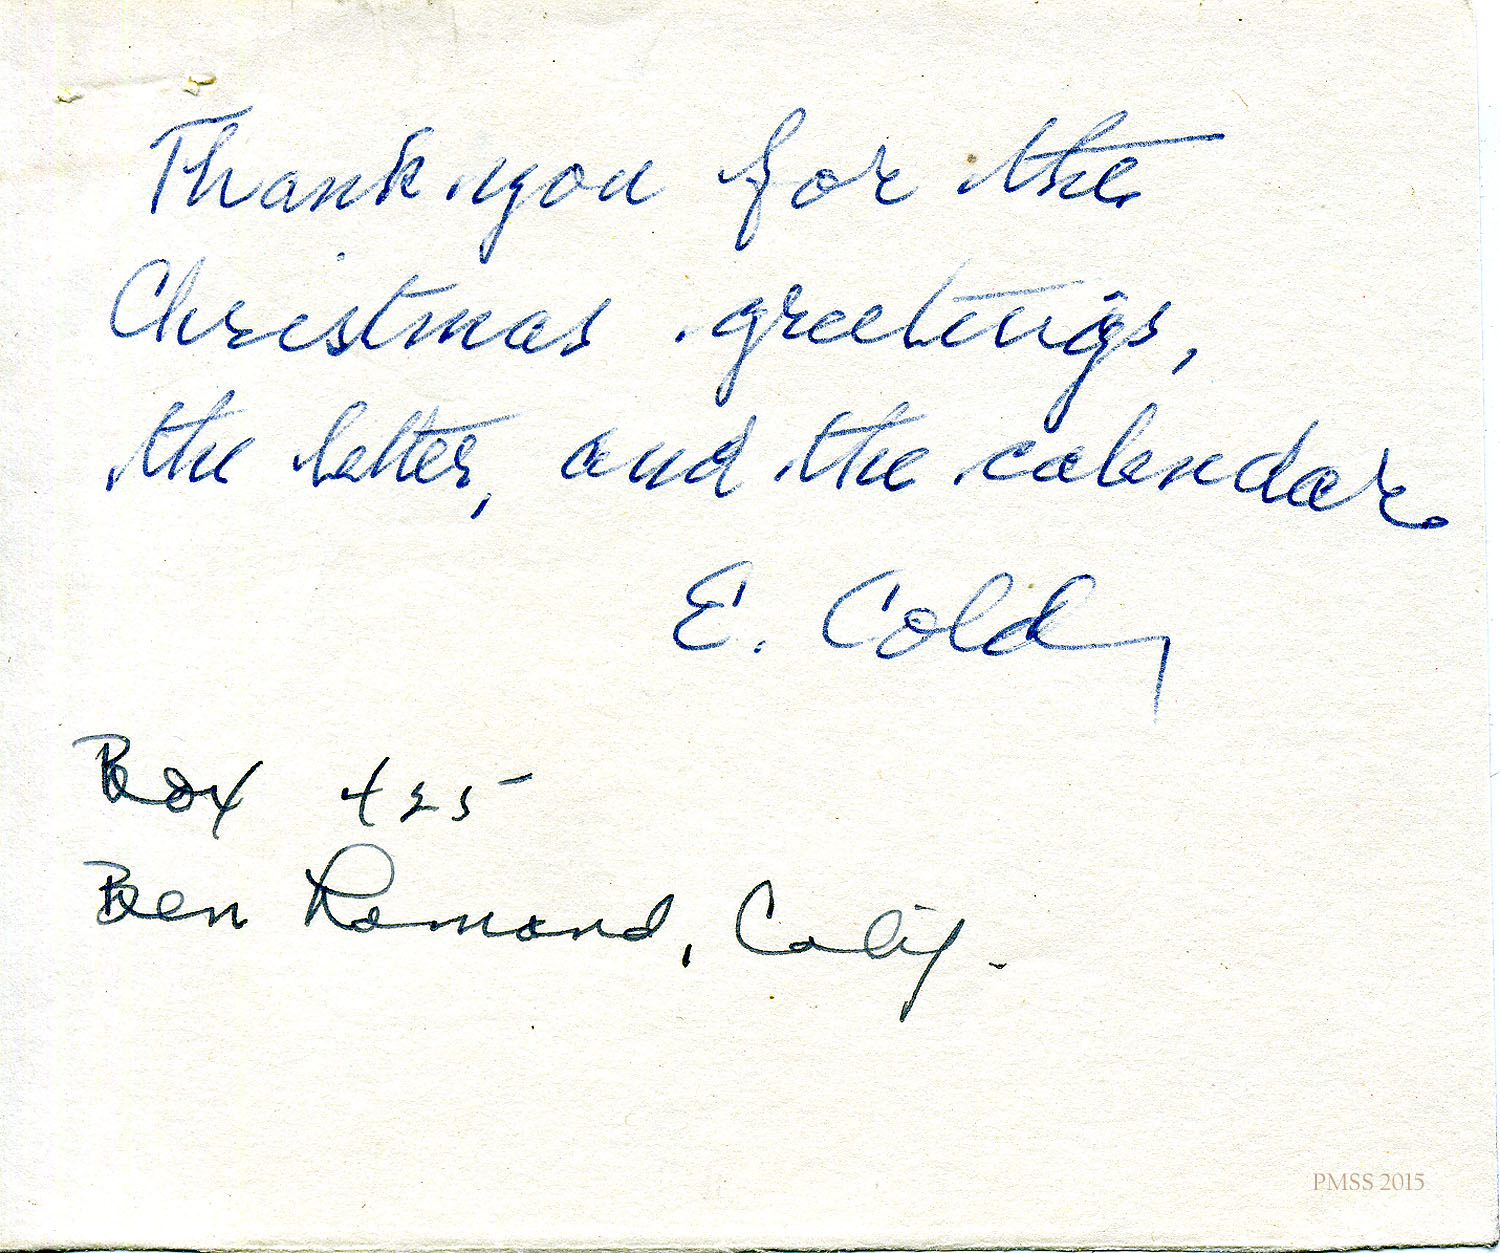 Thank you for the
Christmas greetings,
the letter, and the calendar.
E. Cold
Box 425
Ben Lomond, Calif.
PMSS 2015